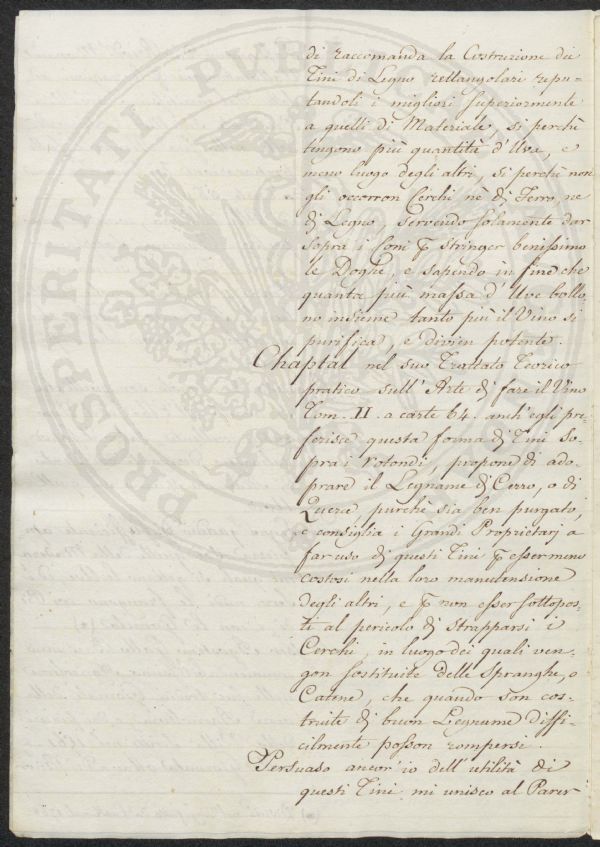 di raccomanda la Costruzione dei
Tini di Legno rettangolari repu-
tandoli i migliori superiormente
a quelli di Materiale, si perchè
tengono più quantità d'Uva, e
meno luogo degli altri, si perchè non
gli occorron Cerchi nè di Ferro, ne
di Legno, servendo solamente dar
sopra i Coni p stringer benissimo
le Doghe, e sapendo in fine che
quanta più massa d'Uve bollo-
no insieme tanto più il Vino si
purifica, e divien potente.
Chaptal nel suo Trattato Teorico
pratico sull'Arte di fare il Vino
Tom. II. a carte 64. anch'egli pre-
ferisce questa forma di Tini so-
pra i rotondi, propone di ado-
prare il Legname di Cerro, o di
Querce purchè sia ben purgato,
e consiglia i Grandi Proprietarj a
far uso di questi Tini p esser meno
costosi nella loro manutensione
degli altri, e p non esser sottopos-
ti al pericolo di strapparsi i
Cerchi, in luogo dei quali ven-
gon sostituite delle Spranghe, o
Catene, che quando son cos-
truite di buon Legnume diffi-
cilmente posson rompersi.
Persuaso ancor'io dell'utilità di
questi Tini mi unisco al Parer
PROSPERITATI PUBLICAE